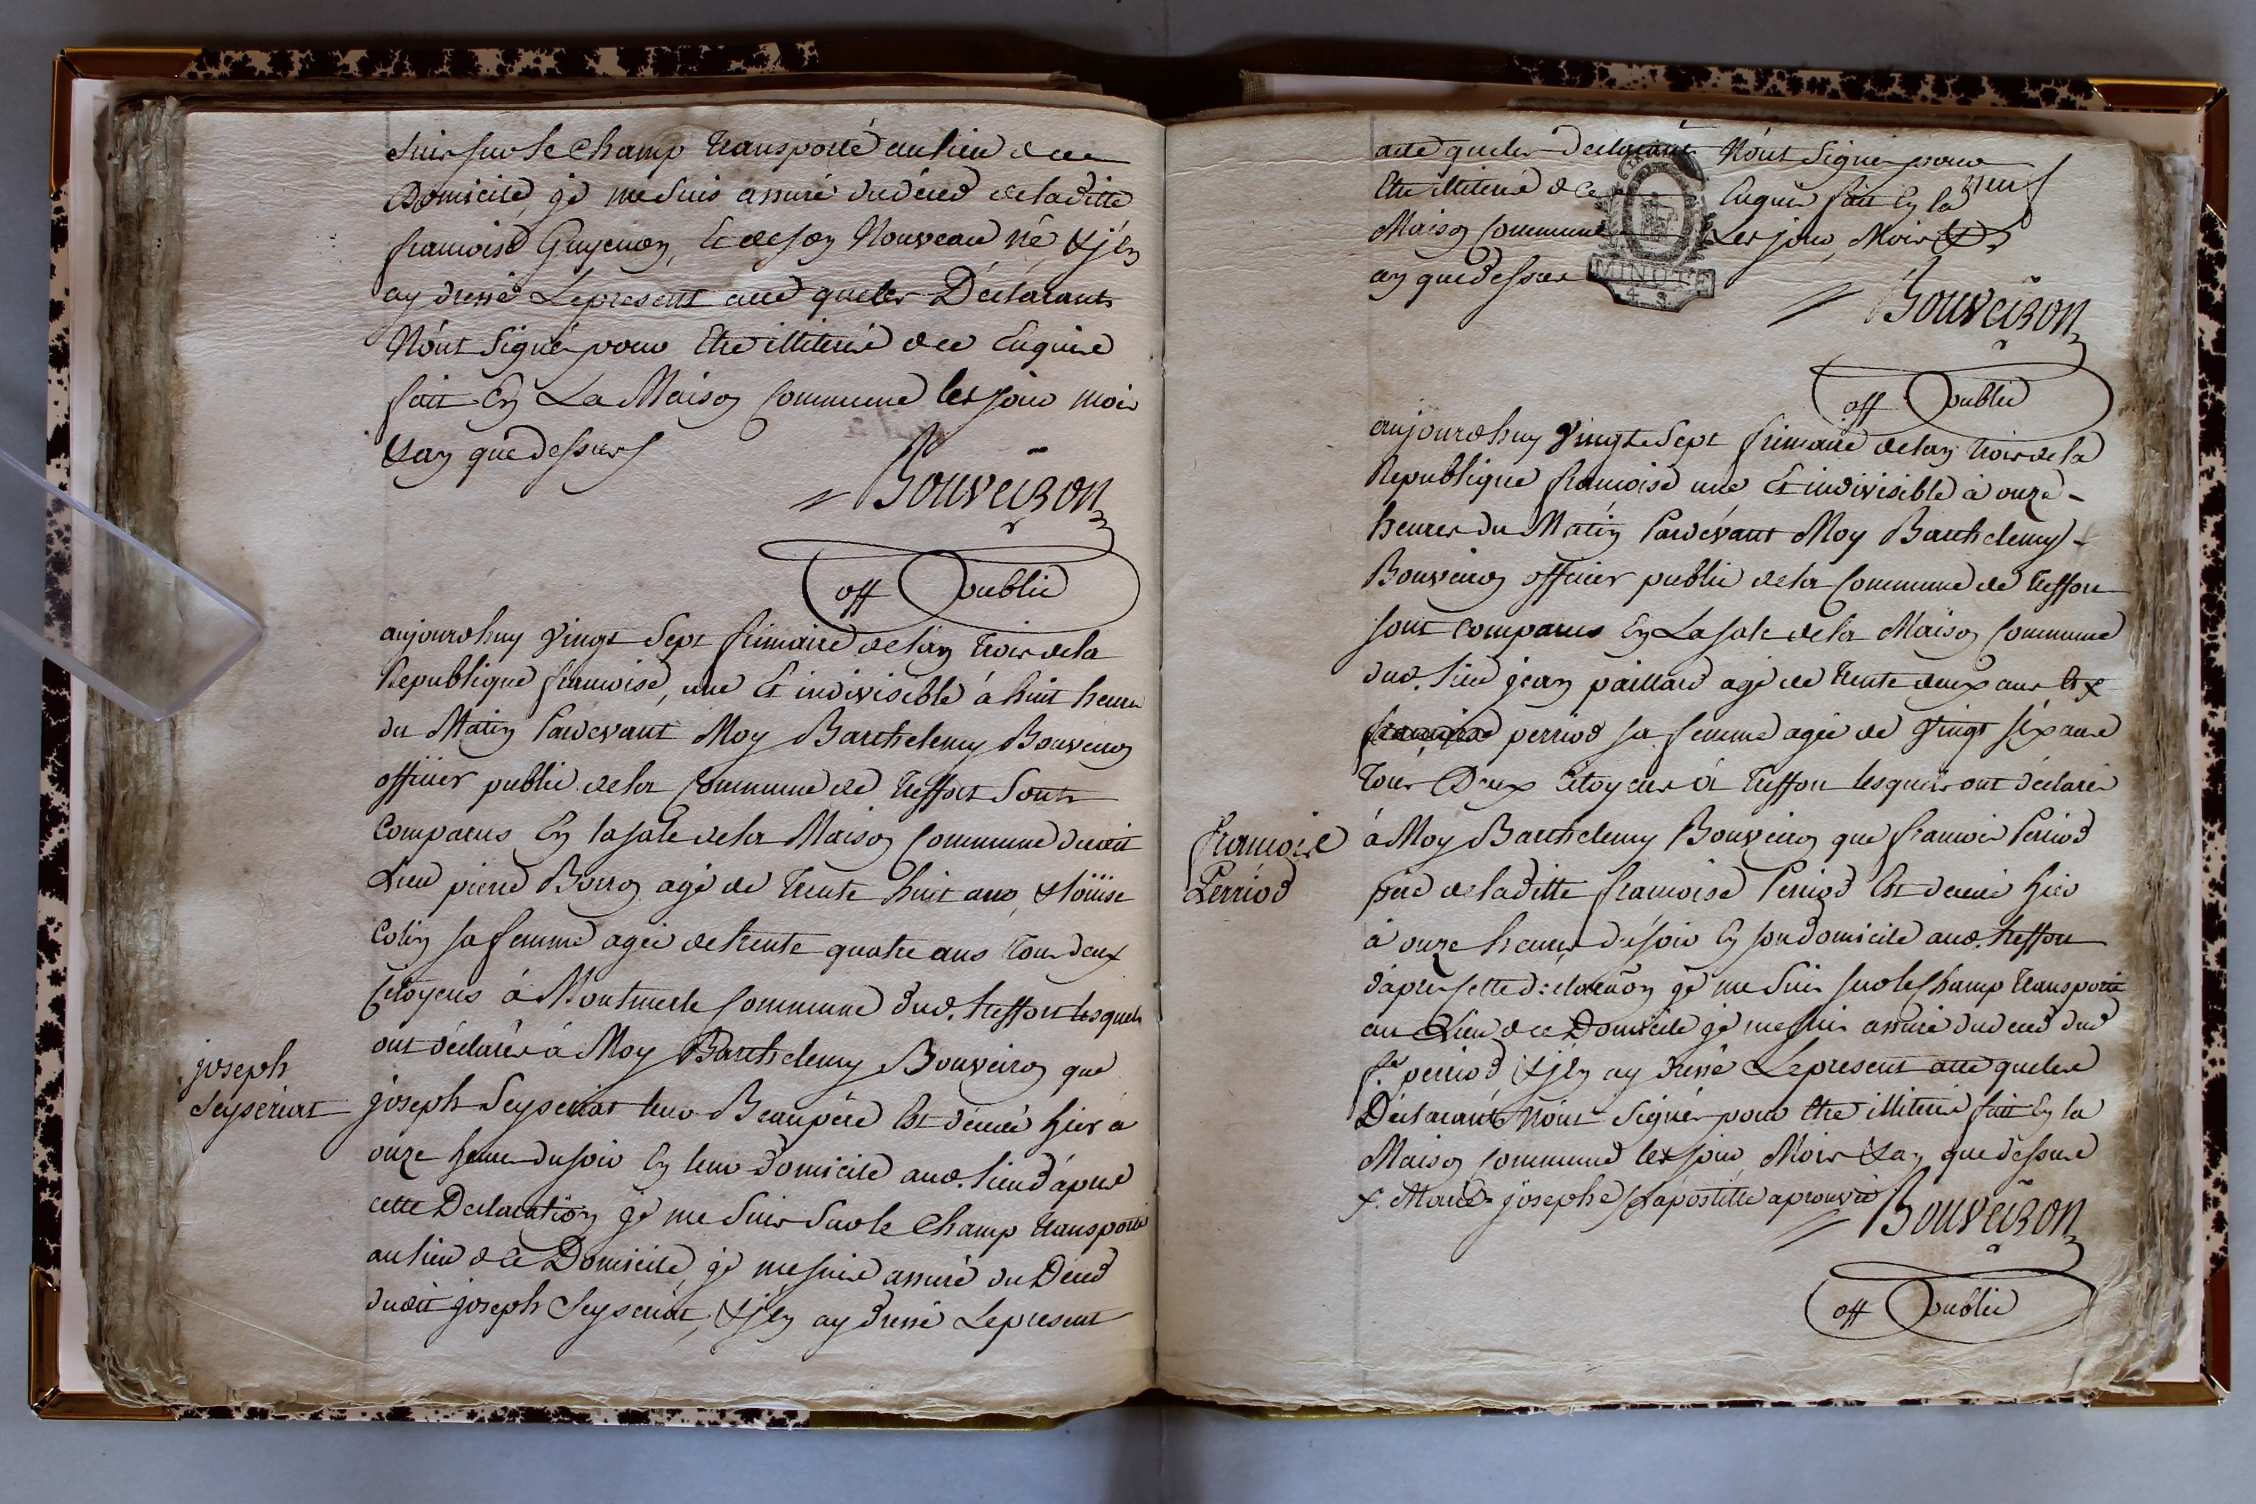 suis sur le champ transporté au lieu de ce
Domicile, je me suis assuré du déced de laditte
francoise Guyenon, et de son Nouveau né, & j'en
ay dressé Le present acte que les Déclarants
N'ont Signé pour Etre illiteré de ce Enquis
fait En La Maison Commune les jour mois
& an que dessus
Bouveiron
off public
aujourdhuy vingt Sept frimaire de l'an trois de la
Republique francoise, une Et indivisible à huit heures
du Matin Pardevant Moy Barthelemy Bouveiron
officier public de la Commune de treffort Sont
Comparus En la sale de la Maison Commune dudit
Lieu pierre Borron agé de trente huit ans, & loüise
Colin sa femme agée de trente quatre ans tous deux
Citoyens à Montmerle Commune dud. treffort lesquels
ont déclarés à Moy Barthelemy Bouveiron que
joseph
Seyseriat
joseph Seyseriat leur Beaupére Est décedé hier à
onze heure du soir En leur domicile aud. lieu d'aprés
cette Declaration je me suis sur le Champ transporté
au lieu de ce Domicile, je me suis assuré du Déced
dudit joseph Seyseriat, & j'en ay dressé Le present
acte que les declarants N'ont Signé pour
Etre illiteré de ce Enquis fait En la
Maison Commune Les jour, Mois &
an que dessus
MINUTE
Bouveiron
off public
aujourdhuy vingt Sept frimaire de l'an trois de la
Republique francoise une Et indivisible à onze
heures du Matin Pardevant Moy Barthelemy
Bouveiron officier public de la Commune de treffort
sont Comparus En La sale de la Maison Commune
dud. lieu jean paillard agé de trente deux ans &
perriod sa femme agée de vingt six ans
tous Deux Citoyens à treffort lesquels ont déclarés
francoise
Perriod
à Moy Barthelemy Bouveiron que francois Perriod
pére de laditte francoise Perriod Est decedé hier
à onze heures du soir En son domicile aud. treffort
d'aprés cette déclaration je me suis sur le Champ transporté
au Lieu de ce Domicile je me suis assuré du deced dud
f.s perriod & j'en ay dressé Le present acte que les
Déclarants N'ont Signé pour Etre illiteré fait En la
Maison Commune les jour, Mois & an que dessus
x. Marie josephe l'apostille aprouvé
Bouveiron
off public